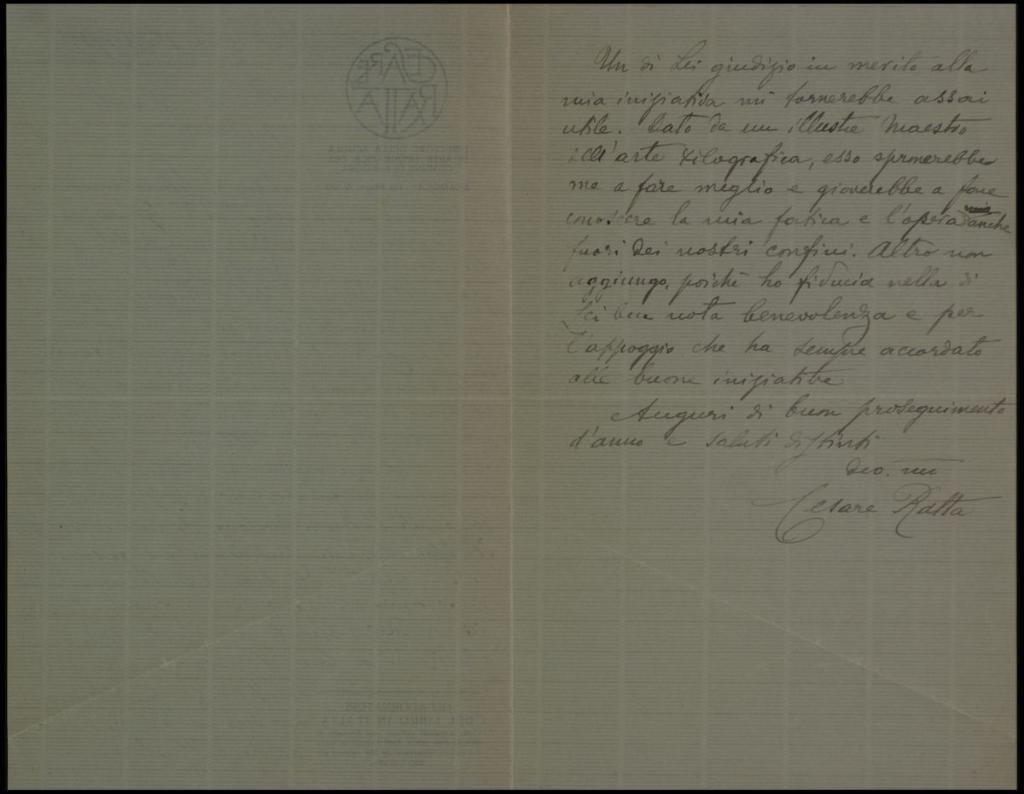 Un di Lei giudizio in merito alla
mia iniziativa mi tornerebbe assai
utile. Dato da un illustre Maestro
dell'arte xilografica, esso spronerebbe
me a fare meglio e gioverebbe a fare
conoscere la mia fatica e l'opera anche
fuori dei nostri confini. Altro non
aggiungo, poichè ho fiducia nella di
Lei ben nota benevolenza e per
l'appoggio che ha sempre accordato
alle buone iniziative
Auguri di buon proseguimento
d'anno e saluti distinti
Cesare Ratta
CESARE
RATTA